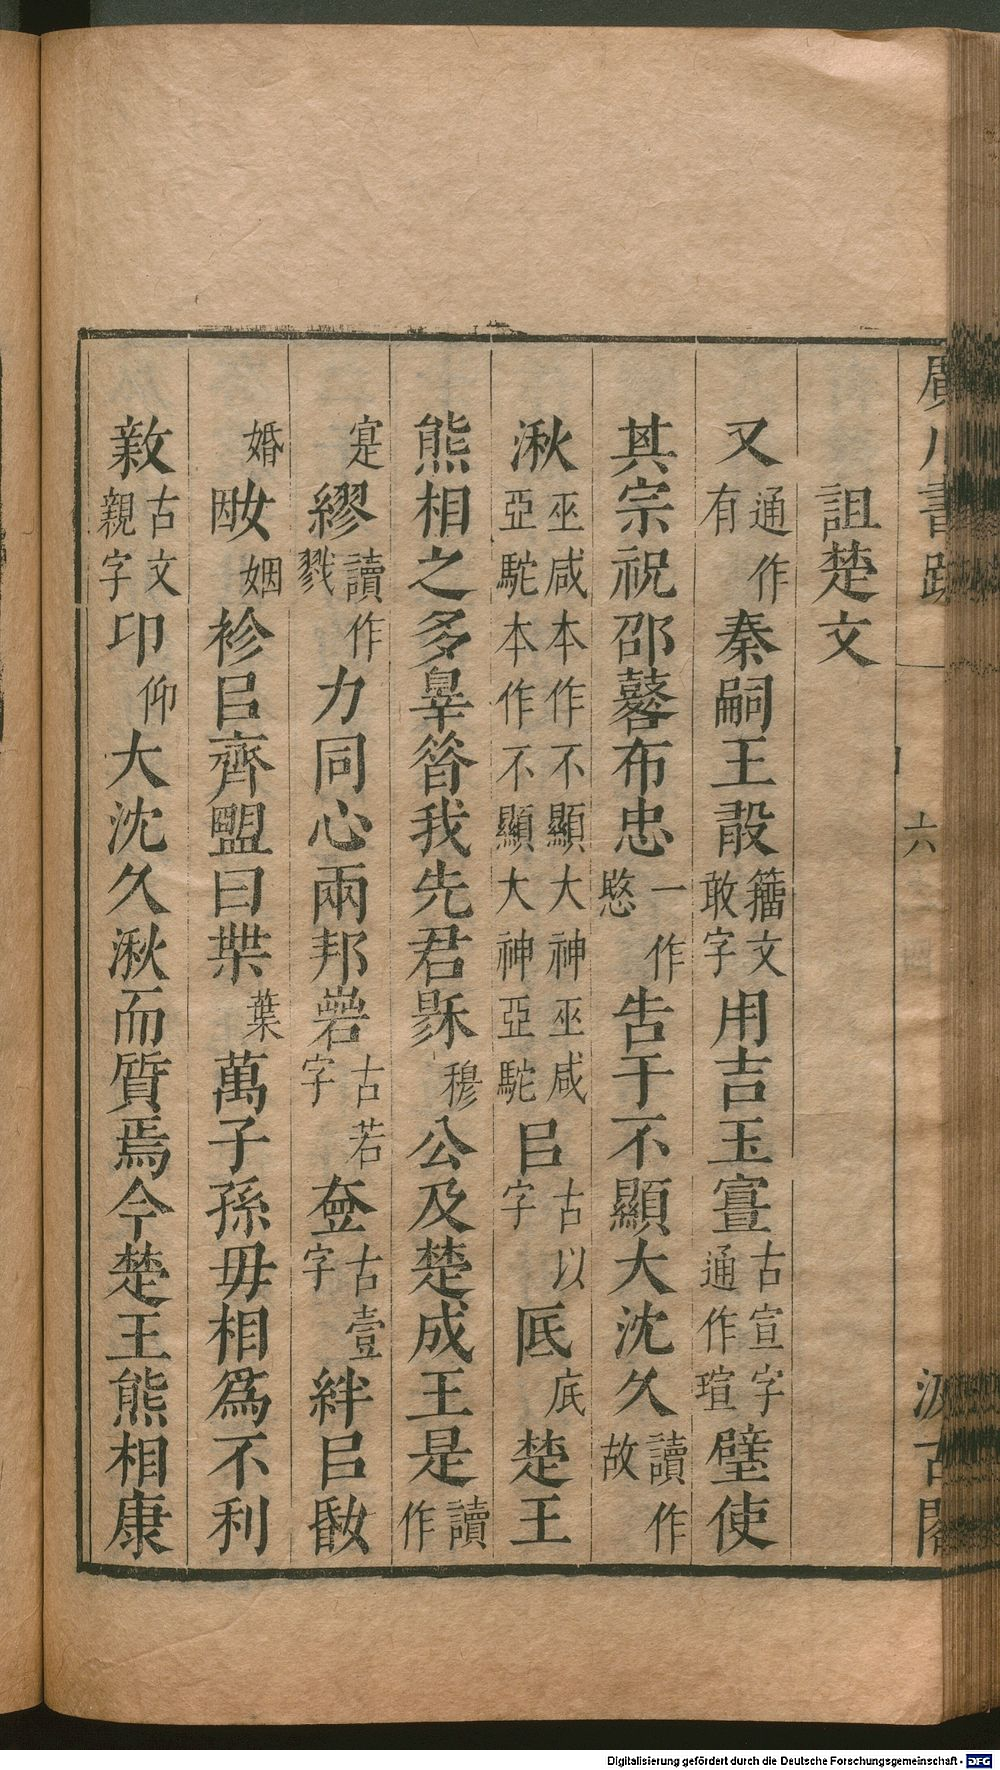 廣川書跋
六
汲古閣
詛楚文
又通作有秦嗣王㪚籒文敢字用吉玉亶古宣字通作瑄璧使
其宗祝邵鼛布忠一作愍告于不顯大沈久讀作故
湫巫咸本作不顯大神巫咸亞駝本作不顯大神亞駝㠯古以字厎底楚王
熊相之多辠昝我先君㣎穆公及楚成王是讀作
寔繆讀作戮力同心兩邦㠭古若字㚃古壹字絆㠯
婚姻袗㠯齊盟曰枼葉萬子孫毋相爲不利
㪟古文親字卬仰大沈久湫而質焉今楚王熊相康
Digitalisierung gefördert durch die Deutsche Forschungsgemeinschaft - DFG